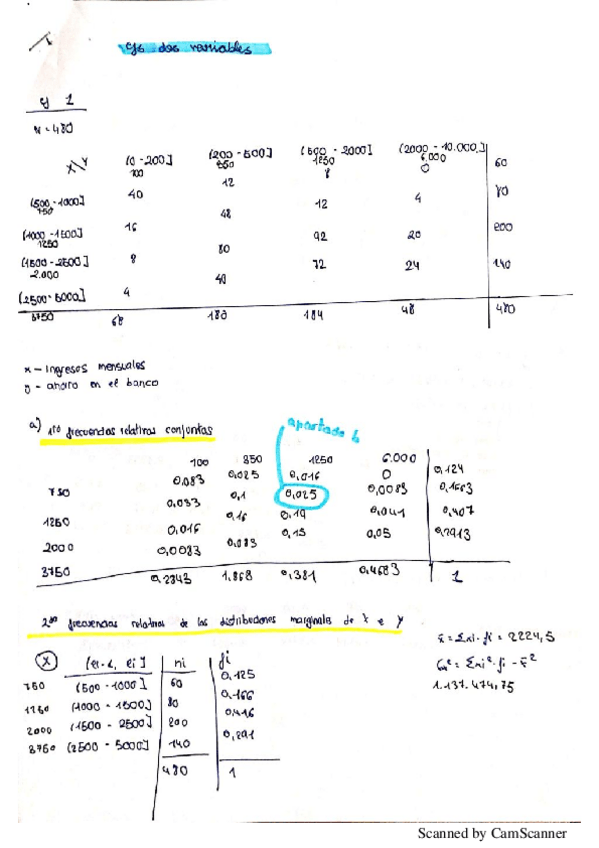 Ejs dos variables
ej 1
N = 480
X/Y (0 - 200] (200 - 500] (500 - 2000] (2000 - 10.000]
100 350 1250 6.000
40 12 8 0 60
(500 - 1000]
750
16 48 12 4 80
(1000 - 1500]
1250
8 80 92 20 200
(1500 - 2500]
2.000
4 40 72 24 140
(2500 - 5000]
3750 68 180 184 48 480
x - ingresos mensuales
y - ahorro en el banco
a) 1ro frecuencias relativas conjuntas
apartado b
100 350 1250 6.000
0,083 0,025 0,016 0 0,124
750
0,033 0,1 0,025 0,0083 0,1663
1250
0,016 0,16 0,19 0,041 0,407
2000
0,0083 0,083 0,15 0,05 0,2913
3750 0,2843 1,868 0,381 0,4683 1
2do frecuencias relativas de las distribuciones marginales de X e Y
x̄ = Σxi · fi = 2224,5
= Σxi² · fi - x̄²
1.137.474,75
(X) [ei-1, ei] ni fi
750 (500 - 1000] 60 0,125
1250 (1000 - 1500] 80 0,166
2000 (1500 - 2500] 200 0,416
3750 (2500 - 5000] 140 0,291
480 1
Scanned by CamScanner